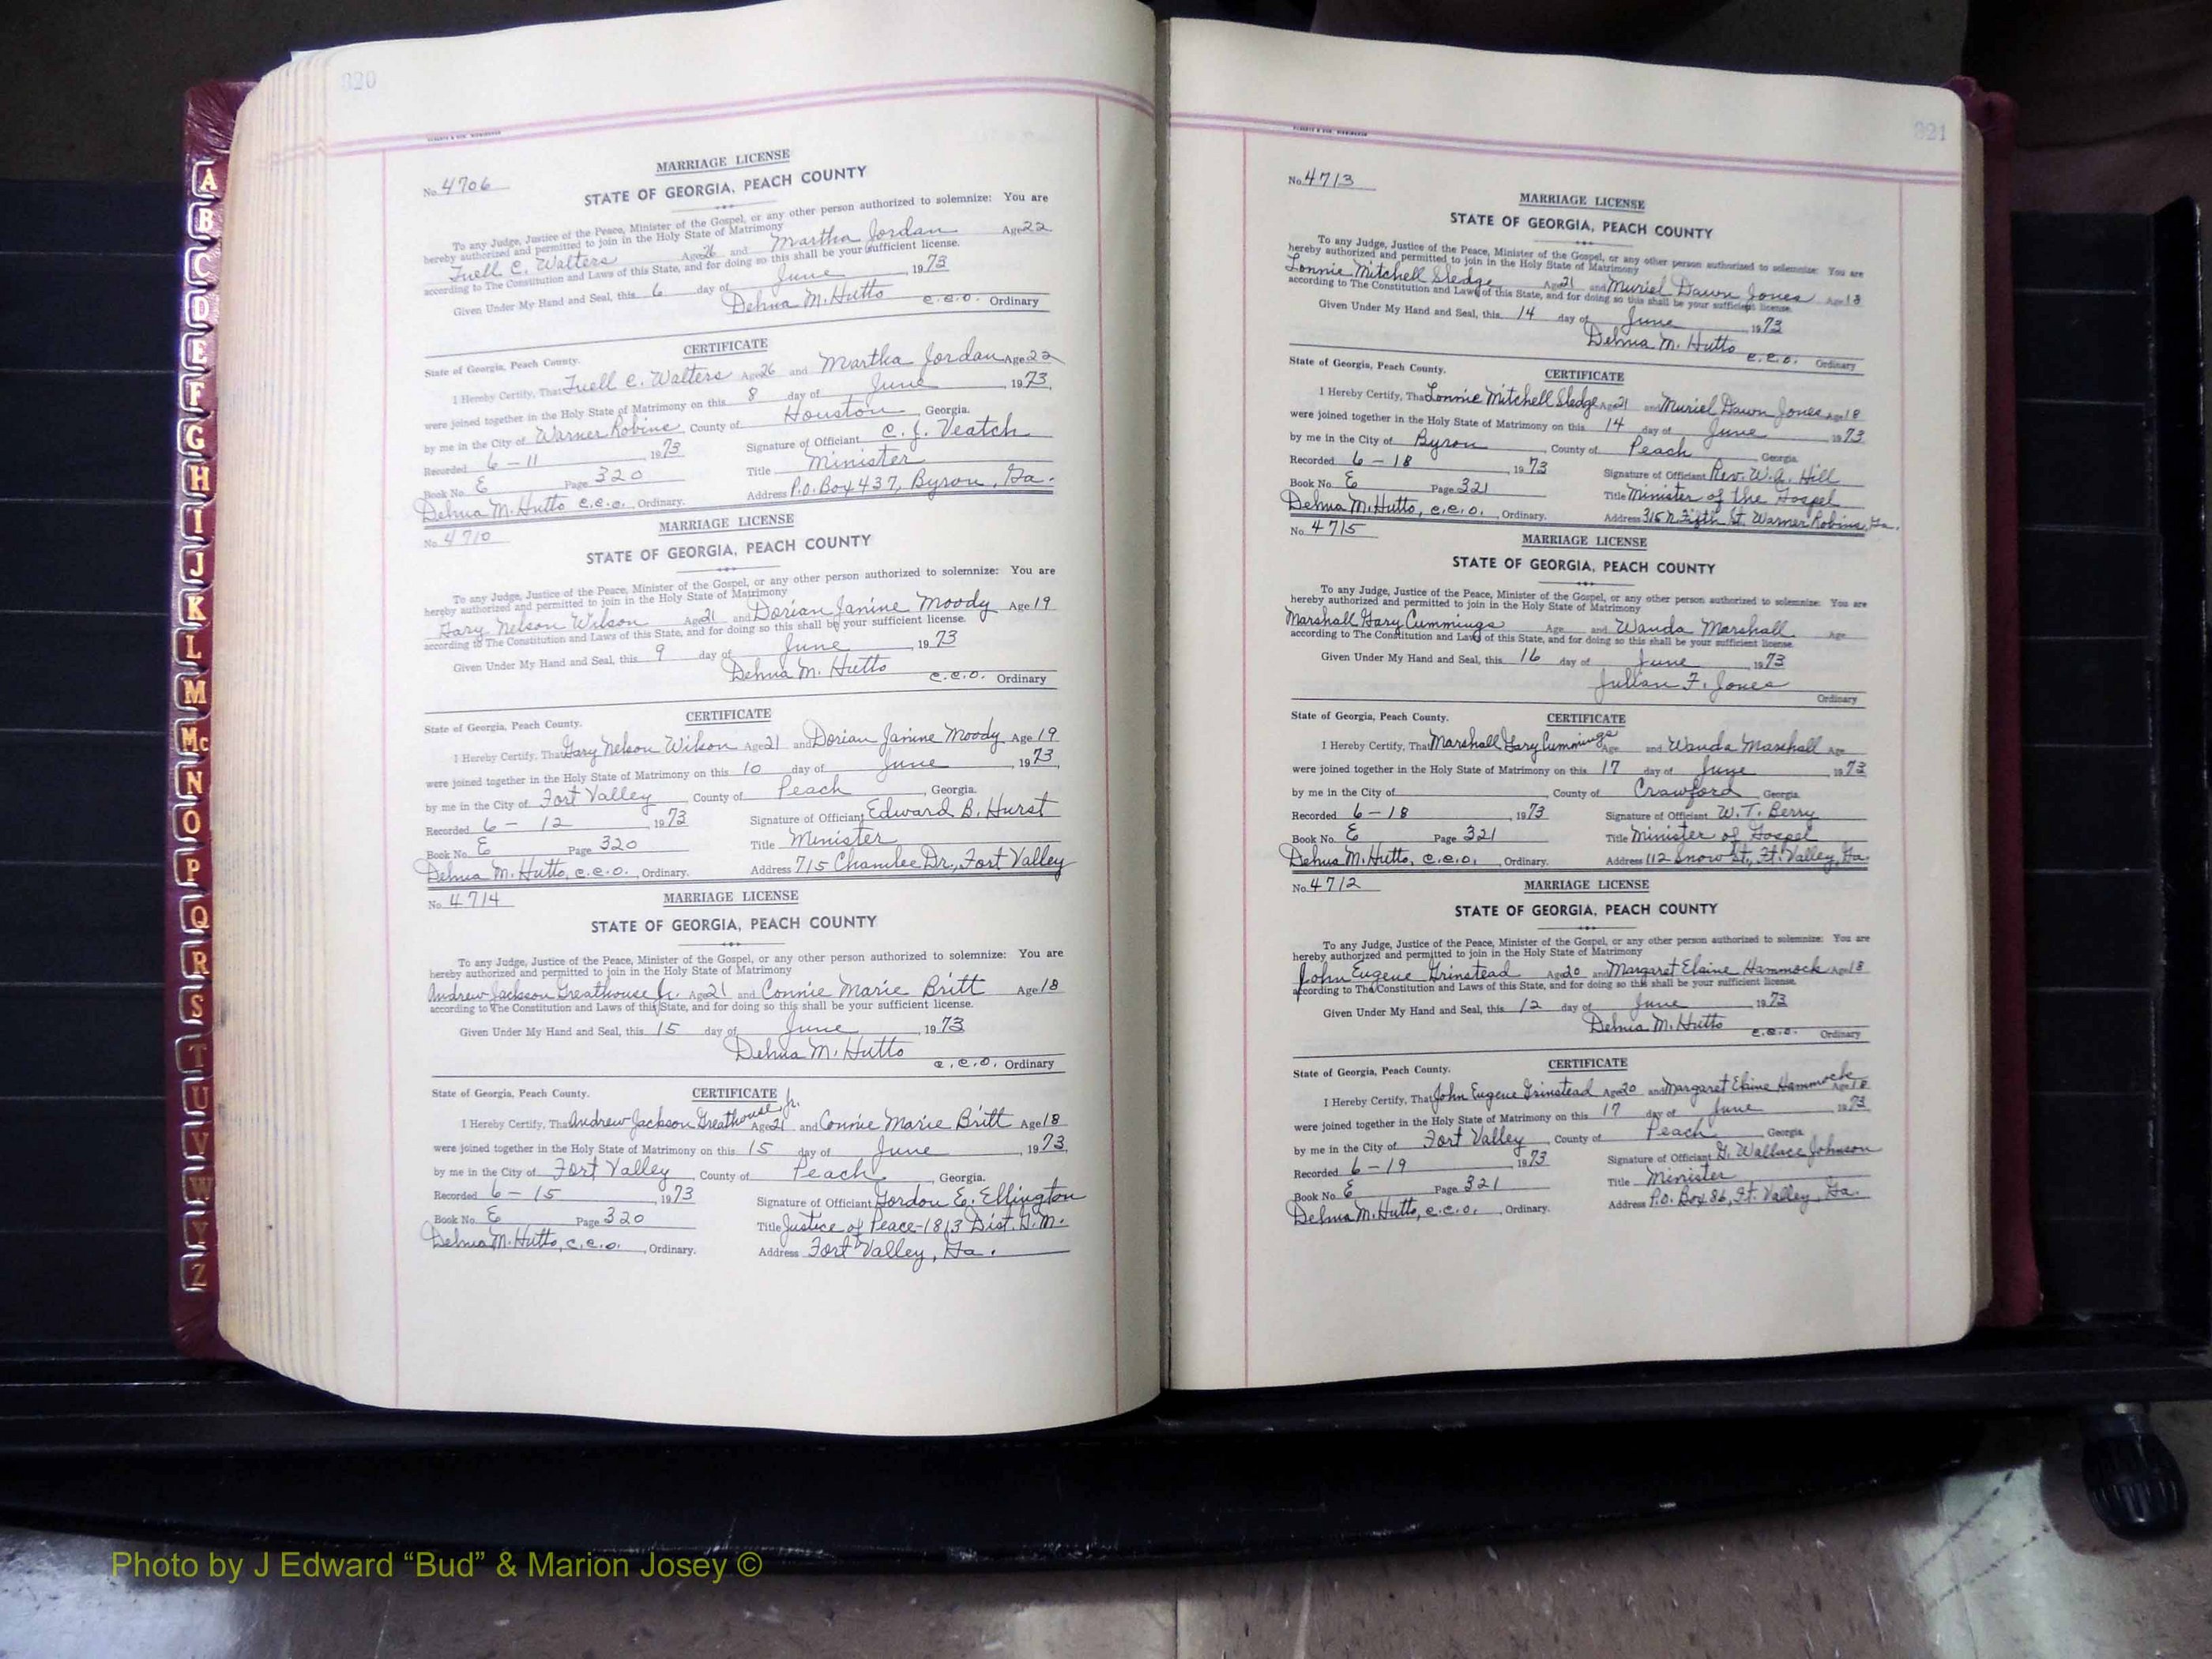 A
B
C
D
E
F
G
H
I
J
K
L
M
Mc
N
O
P
Q
R
S
T
U
V
W
Y
Z
320
MARRIAGE LICENSE
No. 4706
STATE OF GEORGIA, PEACH COUNTY
To any Judge, Justice of the Peace, Minister of the Gospel, or any other person authorized to solemnize: You are
hereby authorized and permitted to join in the Holy State of Matrimony
Truell C. Walters Age 26 and Martha Jordan Age 22
according to The Constitution and Laws of this State, and for doing so this shall be your sufficient license.
Given Under My Hand and Seal, this 6 day of June, 1973
Delma M. Hutto c.c.o. Ordinary
CERTIFICATE
State of Georgia, Peach County.
I Hereby Certify, That Truell C. Walters Age 26 and Martha Jordan Age 22
were joined together in the Holy State of Matrimony on this 8 day of June, 1973,
by me in the City of Warner Robins, County of Houston, Georgia.
Recorded 6-11 1973 Signature of Officiant C. J. Veatch
Book No. E Page 320 Title Minister
Delma M. Hutto c.c.o., Ordinary. Address P.O. Box 437, Byron, Ga.
MARRIAGE LICENSE
No. 4710
STATE OF GEORGIA, PEACH COUNTY
To any Judge, Justice of the Peace, Minister of the Gospel, or any other person authorized to solemnize: You are
hereby authorized and permitted to join in the Holy State of Matrimony
Gary Nelson Wilson Age 21 and Dorian Janine Moody Age 19
according to The Constitution and Laws of this State, and for doing so this shall be your sufficient license.
Given Under My Hand and Seal, this 9 day of June, 1973
Delma M. Hutto c.c.o. Ordinary
CERTIFICATE
State of Georgia, Peach County.
I Hereby Certify, That Gary Nelson Wilson Age 21 and Dorian Janine Moody Age 19
were joined together in the Holy State of Matrimony on this 10 day of June, 1973,
by me in the City of Fort Valley, County of Peach, Georgia.
Recorded 6-12, 1973 Signature of Officiant Edward B. Hurst
Book No. E Page 320 Title Minister
Delma M. Hutto, c.c.o., Ordinary. Address 715 Chamlee Dr., Fort Valley
No. 4714
MARRIAGE LICENSE
STATE OF GEORGIA, PEACH COUNTY
To any Judge, Justice of the Peace, Minister of the Gospel, or any other person authorized to solemnize: You are
hereby authorized and permitted to join in the Holy State of Matrimony
Andrew Jackson Greathouse Jr. Age 21 and Connie Marie Britt Age 18
according to The Constitution and Laws of this State, and for doing so this shall be your sufficient license.
Given Under My Hand and Seal, this 15 day of June, 1973
Delma M. Hutto
c.c.o. Ordinary
State of Georgia, Peach County. CERTIFICATE
I Hereby Certify, That Andrew Jackson Greathouse, Jr. Age 21 and Connie Marie Britt Age 18
were joined together in the Holy State of Matrimony on this 15 day of June, 1973,
by me in the City of Fort Valley County of Peach, Georgia.
Recorded 6-15, 1973 Signature of Officiant Gordon E. Ellington
Book No. E Page 320 Title Justice of Peace-1813 Dist. G.M.
Delma M. Hutto, c.c.o., Ordinary. Address Fort Valley, Ga.
321
No. 4713
MARRIAGE LICENSE
STATE OF GEORGIA, PEACH COUNTY
To any Judge, Justice of the Peace, Minister of the Gospel, or any other person authorized to solemnize: You are
hereby authorized and permitted to join in the Holy State of Matrimony
Lonnie Mitchell Sledge Age 21 and Muriel Dawn Jones Age 18
according to The Constitution and Laws of this State, and for doing so this shall be your sufficient license.
Given Under My Hand and Seal, this 14 day of June, 1973
Delma M. Hutto c.c.o. Ordinary
State of Georgia, Peach County. CERTIFICATE
I Hereby Certify, That Lonnie Mitchell Sledge Age 21 and Muriel Dawn Jones Age 18
were joined together in the Holy State of Matrimony on this 14 day of June 1973,
by me in the City of Byron, County of Peach, Georgia.
Recorded 6-18, 1973 Signature of Officiant Rev. W.A. Hill
Book No. E Page 321 Title Minister of the Gospel
Delma M. Hutto, c.c.o., Ordinary. Address 315 N. Fifth St. Warner Robins, Ga.
No. 4715
MARRIAGE LICENSE
STATE OF GEORGIA, PEACH COUNTY
To any Judge, Justice of the Peace, Minister of the Gospel, or any other person authorized to solemnize: You are
hereby authorized and permitted to join in the Holy State of Matrimony
Marshall Gary Cummings Age and Wanda Marshall Age
according to The Constitution and Laws of this State, and for doing so this shall be your sufficient license.
Given Under My Hand and Seal, this 16 day of June, 1973
Julian F. Jones
Ordinary
State of Georgia, Peach County. CERTIFICATE
I Hereby Certify, That Marshall Gary Cummings Age and Wanda Marshall Age
were joined together in the Holy State of Matrimony on this 17 day of June, 1973
by me in the City of , County of Crawford, Georgia.
Recorded 6-18, 1973 Signature of Officiant W. T. Berry
Book No. E Page 321 Title Minister of Gospel
Delma M. Hutto, c.c.o., Ordinary. Address 112 Snow St., Ft. Valley, Ga.
No. 4712
MARRIAGE LICENSE
STATE OF GEORGIA, PEACH COUNTY
To any Judge, Justice of the Peace, Minister of the Gospel, or any other person authorized to solemnize: You are
hereby authorized and permitted to join in the Holy State of Matrimony
John Eugene Grinstead Age 20 and Margaret Elaine Hammock Age 18
according to The Constitution and Laws of this State, and for doing so this shall be your sufficient license.
Given Under My Hand and Seal, this 12 day of June, 1973
Delma M. Hutto c.c.o. Ordinary
State of Georgia, Peach County. CERTIFICATE
I Hereby Certify, That John Eugene Grinstead Age 20 and Margaret Elaine Hammock Age 18
were joined together in the Holy State of Matrimony on this 17 day of June 1973
by me in the City of Fort Valley, County of Peach, Georgia.
Recorded 6-19, 1973 Signature of Officiant G. Wallace Johnson
Book No. E Page 321 Title Minister
Delma M. Hutto, c.c.o., Ordinary. Address P.O. Box 86, Ft. Valley, Ga.
Photo by J Edward “Bud” & Marion Josey ©